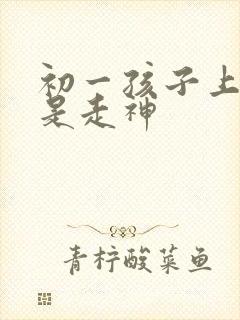 初一孩子上
是走神
青柠酸菜鱼